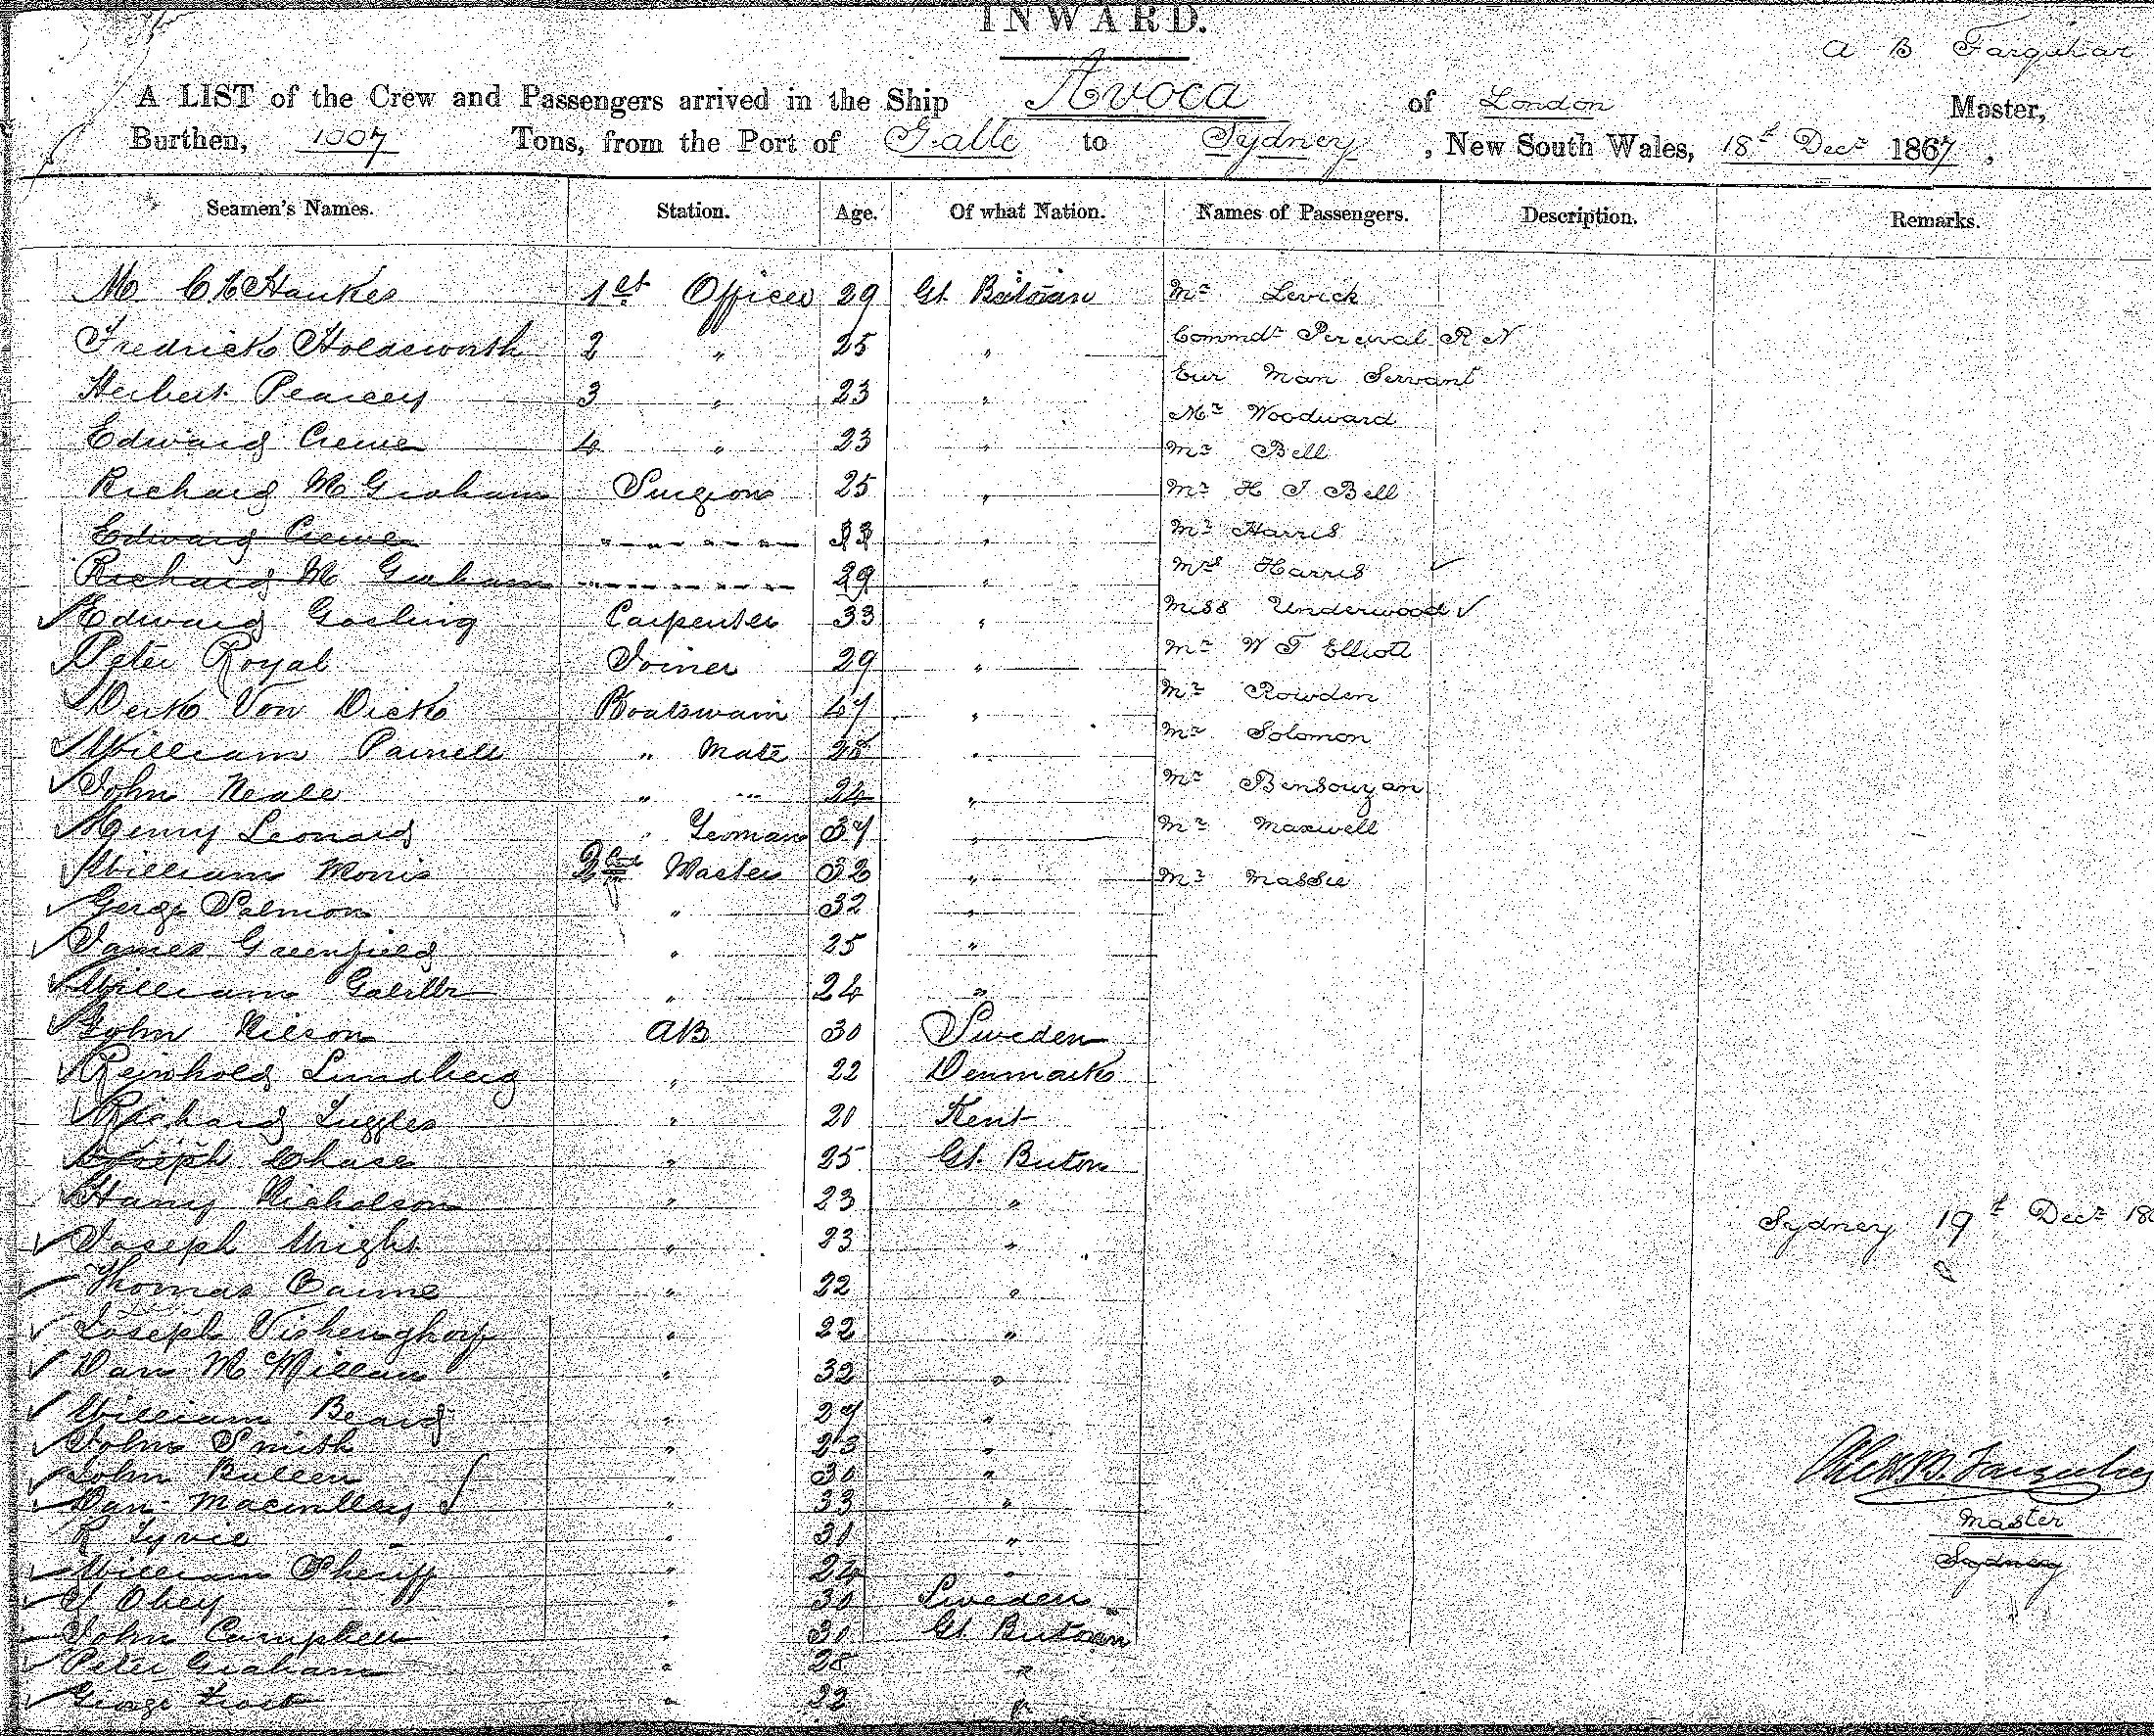 INWARD.
A B Farquhar
A LIST of the Crew and Passengers arrived in the Ship Avoca of London Master,
Burthen, 1007 Tons, from the Port of Galle to Sydney, New South Wales, 18th Decr 1867,
Seamen's Names. Station. Age. Of what Nation. Names of Passengers. Description. Remarks.
M Hankes 1st Officer 29 Gt. Britain Mr Levick
Fredrick Holdsworth 2 " 25 " Commdr Percival R N
Eur Man Servant
Herbert Pearcey 3 " 23 " Mr Woodward
Edward Crewe 4 " 23 " Mr Bell
Richard M Graham Surgeon 25 " Mr H J Bell
Edward Crewe " " Mr Harris
Richard M Graham " 29 " Mrs Harris
Edward Gosling Carpenter 33 " Miss Underwood
Peter Royal Joiner 29 " Mr W T Elliott
Derk Von Dick Boatswain 47 " Mr Rowden
William Parnell " Mate 28 " Mr Solomon
John Neale " " 24 " Mr Bensouzan
Henry Leonard " Yeoman 37 " Mr Maxwell
William Morris Master 32 " Mr Massie
Gerge Salmon " 32 "
James Greenfield " 25 "
William " 24 "
John Nilson AB 30 Sweden
Reinhold Lundberg " 22 Denmark
Richard Luggles " 20 Kent
Joseph Chase " 25 Gt. Briton
Harry Nicholson " 23 "
Joseph Wright " 23 "
Sydney 19th Decr 186
Thomas " 22 "
Joseph " 22 "
Dan McMillan " 32 "
William Beard " 27 "
John Smith " 23 "
John Bullen " 30 "
Dan " 33 "
Alex B. Farquhar
R Tyrie " 31 "
Master
William Sheriff " 24 "
Sydney
J Obey " 30 Sweden
John Campbell " 30 Gt. Britain
Peter Graham " 28 "
George Frost " 22 "